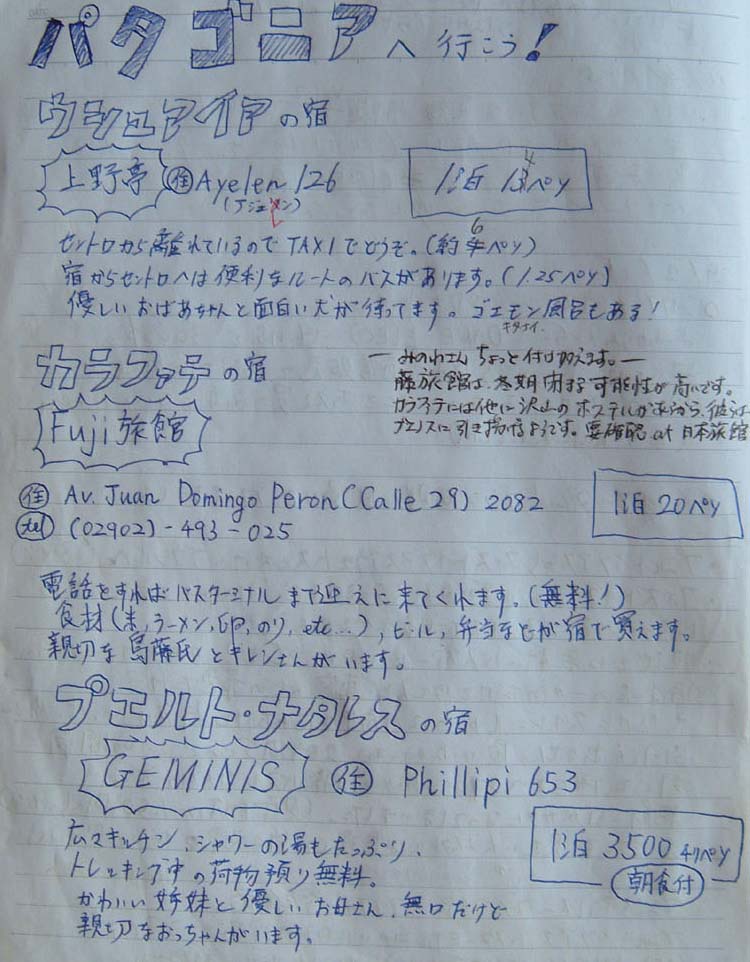 パタゴニアへ行こう!
ウシュアイアの宿
上野亭 住 Ayelen 126
(アジェレン)
1泊 14ペソ
セントロから離れているのでTAXIでどうぞ。(約6ペソ)
宿からセントロへは便利なルートのバスがあります。(1.25ペソ)
優しいおばあちゃんと面白い犬が待ってます。ゴエモン風呂もある!
キタナイ.
カラファテの宿
ーみのわさん ちょっと付け加えます。ー
藤旅館は、冬期 閉まる可能性が高いです。
カラファテには他に沢山のホステルがあるから、彼らは
ブエノスに引き揚げるようです。要確認 at 日本旅館
Fuji旅館
住 Av. Juan Domingo Peron (Calle 29) 2082
1泊 20ペソ
tel (02902)-493-025
電話をすればバスターミナルまで迎えに来てくれます。(無料!)
食材(米,ラーメン,卵,のり,etc...),ビール,弁当などが宿で買えます。
親切な 藤氏とキレンさんがいます。
プエルト・ナタレスの宿
GEMINIS 住 Phillipi 653
1泊 3500チリペソ
朝食付
広いキッチン、シャワーの湯もたっぷり、
トレッキング中の荷物預り無料。
かわいい姉妹と優しいお母さん、無口だけど
親切なおっちゃんがいます。